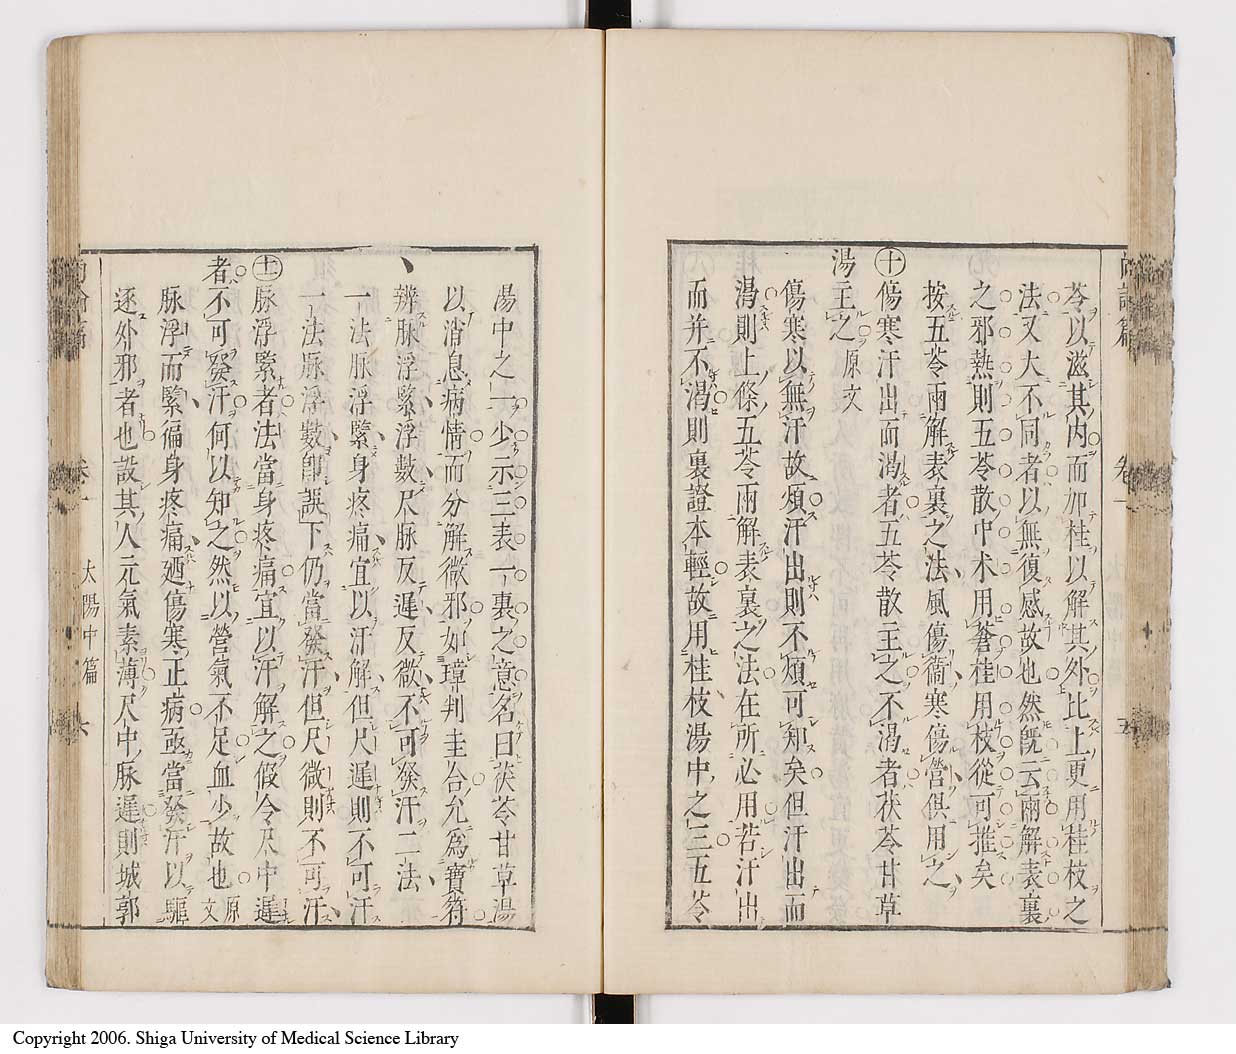 苓以滋其内而加桂以解其外比上更用桂枝之
法又大不同者以無復感故也然旣云兩解表裏
之邪熱則五苓散中术用蒼桂用枝從可推矣
按五苓兩解表裏之法風傷衞寒傷營俱用之
㊉傷寒汗出而渴者五苓散主之不渴者茯苓甘草
湯主之原文
傷寒以無汗故煩汗出則不煩可知矣但汗出而
渴則上條五苓兩解表裏之法在所必用若汗出
而并不渴則裏證本輕故用桂枝湯中之三五苓
卷一
五
湯中之一少示三表一裏之意名曰茯苓甘草湯
以消息病情而分解微邪如璋判圭合允爲寶符
辨脉浮緊浮數尺脉反遲反微不可發汗二法
一法脉浮緊身疼痛宜以汗解但尺遲則不可汗
一法脉浮數卽誤下仍當發汗但尺微則不可汗
十一脉浮緊者法當身疼痛宜以汗解之假令尺中遲
者不可發汗何以知之然以營氣不足血少故也原文
脉浮而緊徧身疼痛廼傷寒正病亟當發汗以驅
逐外邪者也設其人元氣素薄尺中脉遲則城郭
卷一 太陽中篇 六
Copyright 2006. Shiga University of Medical Science Library